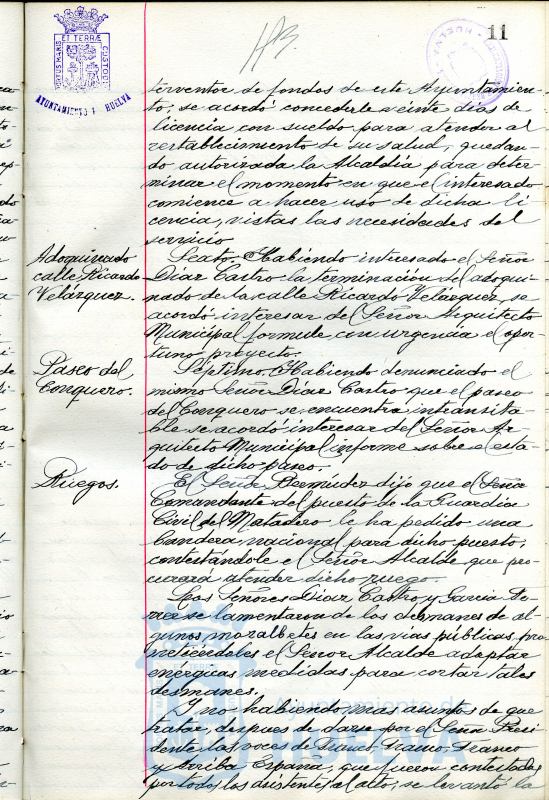 11
PORTUS MARIS ET TERRÆ CUSTODIA
AYUNTAMIENTO DE HUELVA
terventor de fondos de este Ayuntamien-
to, se acordó concederle veinte días de
licencia con sueldo para atender al
restablecimiento de su salud, quedan-
do autorizada la Alcaldía para deter-
minar el momento en que el interesado
comience a hacer uso de dicha li
cencia, vistas las necesidades del
servicio
Adoquinado
calle Ricardo
Velázquez.
Sexto. Habiendo interesado el Señor
Díaz Castro la terminación del adoqui-
nado de la calle Ricardo Velázquez, se
acordó interesar del Señor Arquitecto
Municipal formule con urgencia el opor-
tuno proyecto.
Paseo del
Conquero.
Séptimo. Habiendo denunciado el
mismo Señor Díaz Castro que el paseo
del Conquero se encuentra intransita-
ble se acordó interesar del Señor Ar-
quitecto Municipal informe sobre el esta-
do de dicho paseo.
Ruegos.
El Señor Bermudez dijo que el Señor
Comandante del puesto de la Guardia
Civil del Matadero le ha pedido una
bandera nacional para dicho puesto,
contestándole el Señor Alcalde que pro-
curará atender dicho ruego.
Los Señores Díaz Castro y García
se lamentaron de los desmanes de al-
gunos mozalbetes en las vías públicas, pro
metiéndoles el Señor Alcalde adoptar
energicas medidas para cortar tales
desmanes.
Y no habiendo mas asuntos de que
tratar, despues de darse por el Señor Presi
dente las voces de Franco, Franco, Franco
y Arriba España, que fueron contestadas
por todos los asistentes al acto, se levantó la
HUELVA